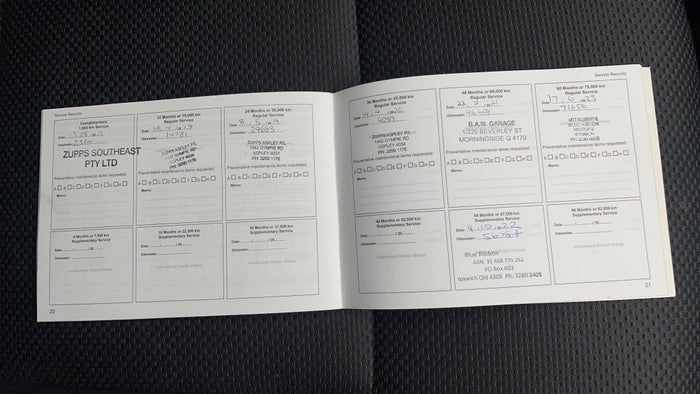 Service Records
Complimentary
1,500 km Service
Date:
Odometer:
ZUPPS SOUTHEAST
PTY LTD
Preventative maintenance items requested:
A B C D E F G H
Memo:
12 Months or 15,000 km
Regular Service
Date:
Odometer: 14781
ZUPPS ASPLEY P/L
1442 GYMPIE RD
ASPLEY 4034
PH: 3259 1176
Preventative maintenance items requested:
A B C D E F G H
Memo:
24 Months or 30,000 km
Regular Service
Date: 8, 5, 2019
Odometer: 29683
ZUPPS ASPLEY P/L
1442 GYMPIE RD
ASPLEY 4034
PH: 3259 1176
Preventative maintenance items requested:
A B C D E F G H
Memo:
6 Months or 7,500 km
Supplementary Service
Date: / / 20
Odometer:
Authorised Dealer Stamp
18 Months or 22,500 km
Supplementary Service
Date: / / 20
Odometer:
Authorised Dealer Stamp
30 Months or 37,500 km
Supplementary Service
Date: / / 20
Odometer:
Authorised Dealer Stamp
20
Service Records
36 Months or 45,000 km
Regular Service
Date:
Odometer:
ZUPPS ASPLEY P/L
1442 GYMPIE RD
ASPLEY 4034
PH: 3259 1176
Preventative maintenance items requested:
A B C D E F G H
Memo:
48 Months or 60,000 km
Regular Service
Date: 22, 7, 2021
Odometer:
B.A.M. GARAGE
1/220 BEVERLEY ST
MORNINGSIDE Q 4170
Preventative maintenance items requested:
A B C D E F G H
Memo:
60 Months or 75,000 km
Regular Service
Date: 17, 6, 2023
Odometer: 71650
MOTORS
IPSWICH
Preventative maintenance items requested:
A B C D E F G H
Memo:
42 Months or 52,500 km
Supplementary Service
Date: / / 20
Odometer:
54 Months or 67,500 km
Supplementary Service
Date: 4, 10, 2022
Odometer:
Blue Ribbon
ABN: 31 458 735 262
PO Box 603
Ipswich Qld 4305 Ph: 3280 3405
66 Months or 82,500 km
Supplementary Service
Date: / / 20
Odometer:
21